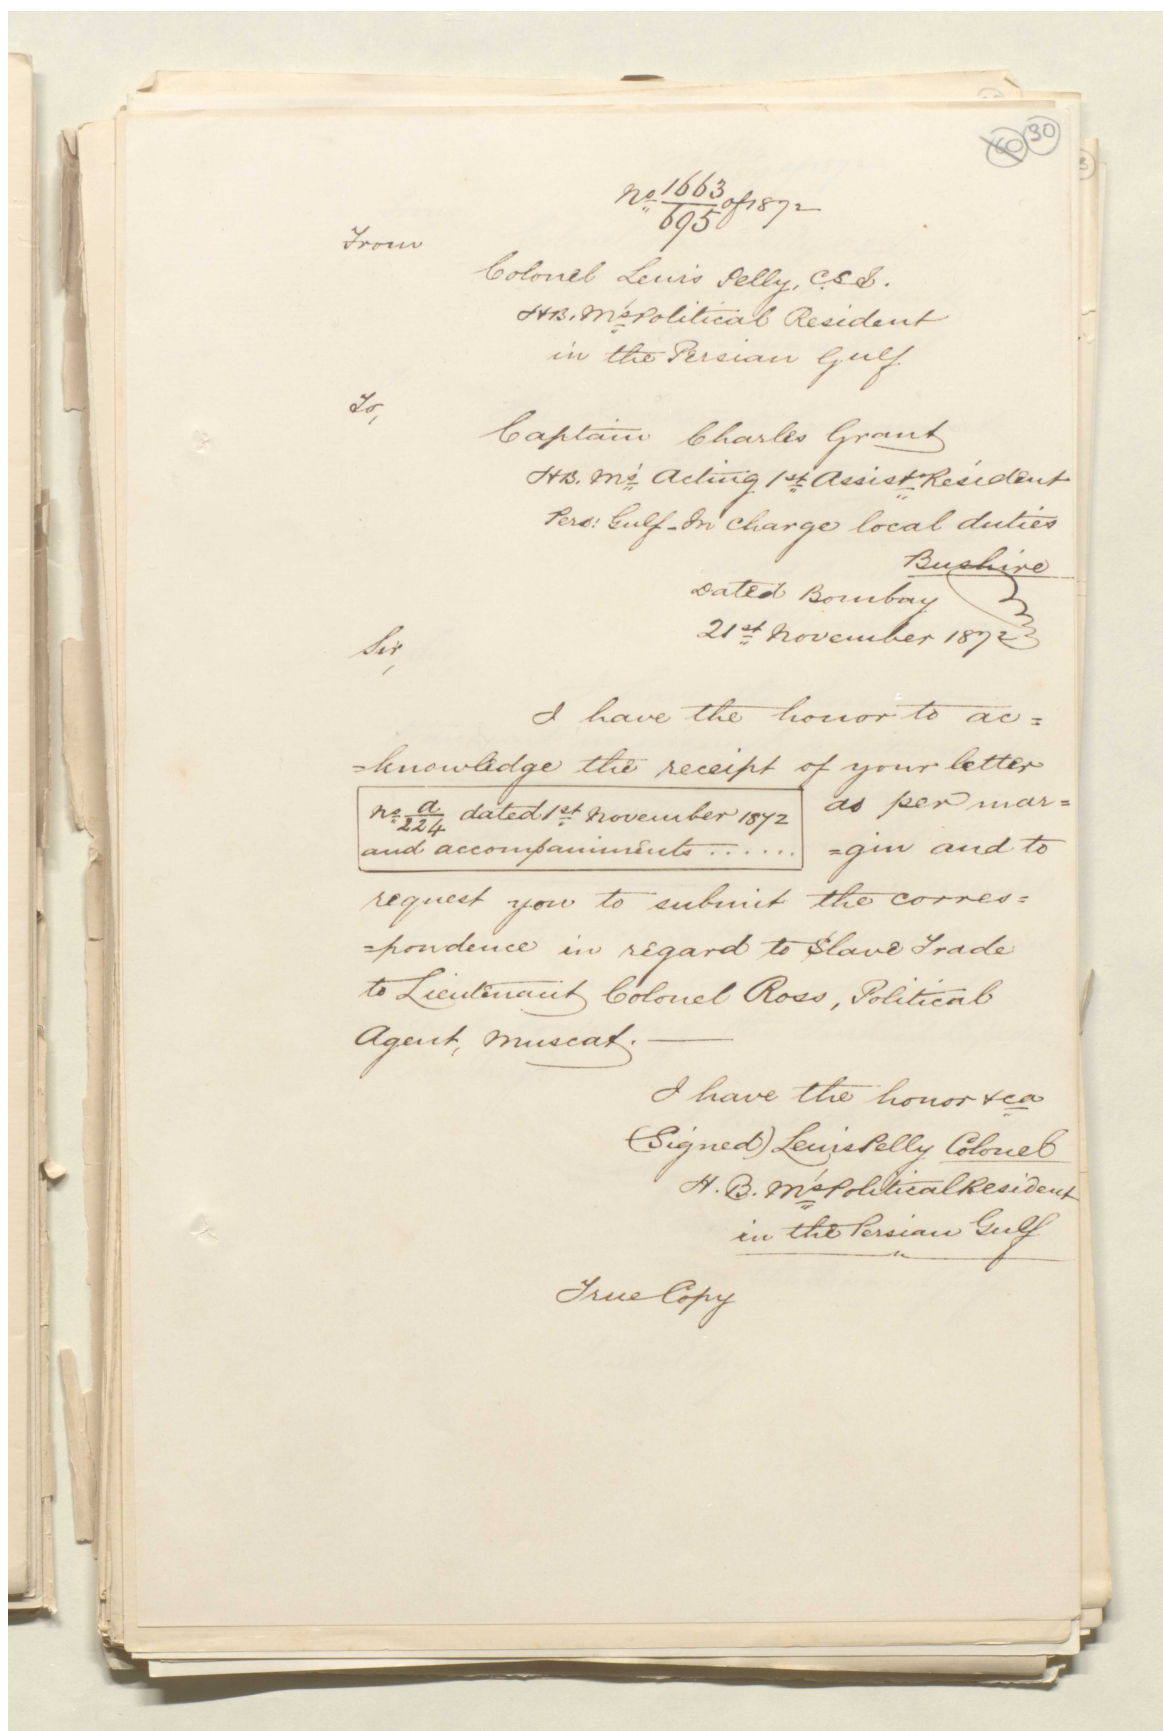 60 30
No 1663/695 of 1872
From
Colonel Lewis Pelly, C.S.I.
H.B. M's Political Resident
in the Persian Gulf
To,
Captain Charles Grant
H.B. M's Acting 1st Assist Resident
Pers: Gulf - In charge local duties
Bushire
Dated Bombay
21st November 1872
Sir,
I have the honor to ac=
=knowledge the receipt of your letter
No a/224 dated 1st November 1872
and accompaniments ......
as per mar=
=gin and to
request you to submit the corres=
=pondence in regard to Slave Trade
to Lieutenant Colonel Ross, Political
Agent, Muscat. —
I have the honor &ca
(Signed) Lewis Pelly Colonel
H. B. M's Political Resident
in the Persian Gulf
True Copy